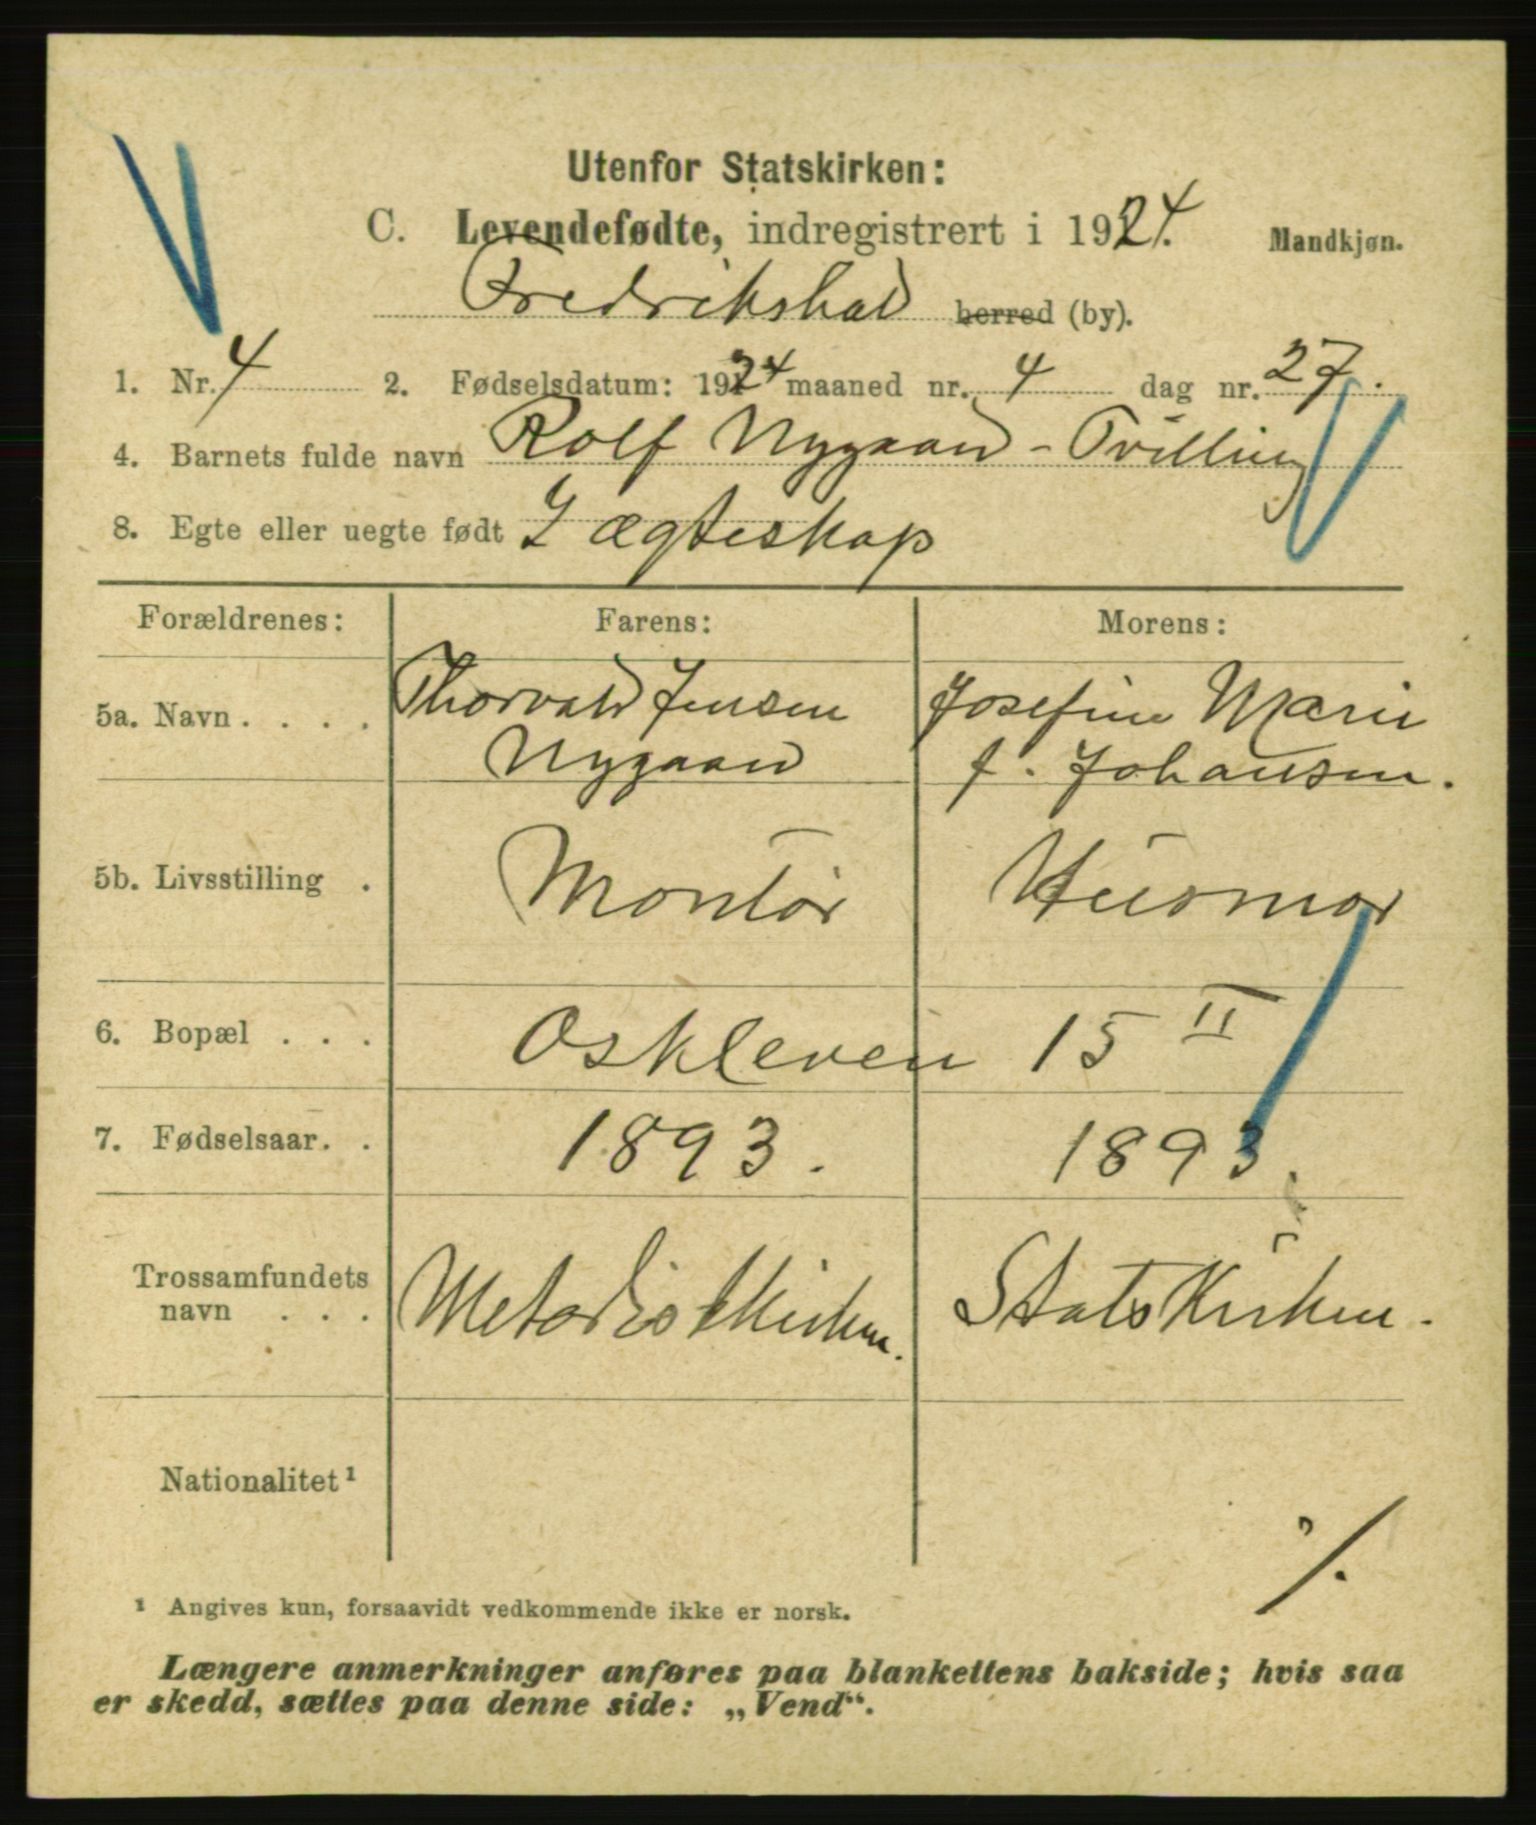 Utenfor Statskirken:
C. Levendefødte, indregistrert i 1924. Mandkjøn.
Fredrikshald herred (by).
1. Nr. 4 2. Fødselsdatum: 1924 maaned nr. 4 dag nr. 27.
4. Barnets fulde navn Rolf Nygaard - Tvilling
8. Egte eller uegte født I ægteskap
Forældrenes: Farens: Morens:
5a. Navn . . . . Thorvald Jensen Nygaard Josefine Marie f. Johansen.
5b. Livsstilling . Montør Husmor
6. Bopæl . . . Oskleven 15 II
7. Fødselsaar. . 1893. 1893.
Trossamfundets navn . . . Metodistkirken. Statskirken.
Nationalitet¹
%
¹ Angives kun, forsaavidt vedkommende ikke er norsk.
Længere anmerkninger anføres paa blankettens bakside; hvis saa
er skedd, sættes paa denne side: „Vend“.